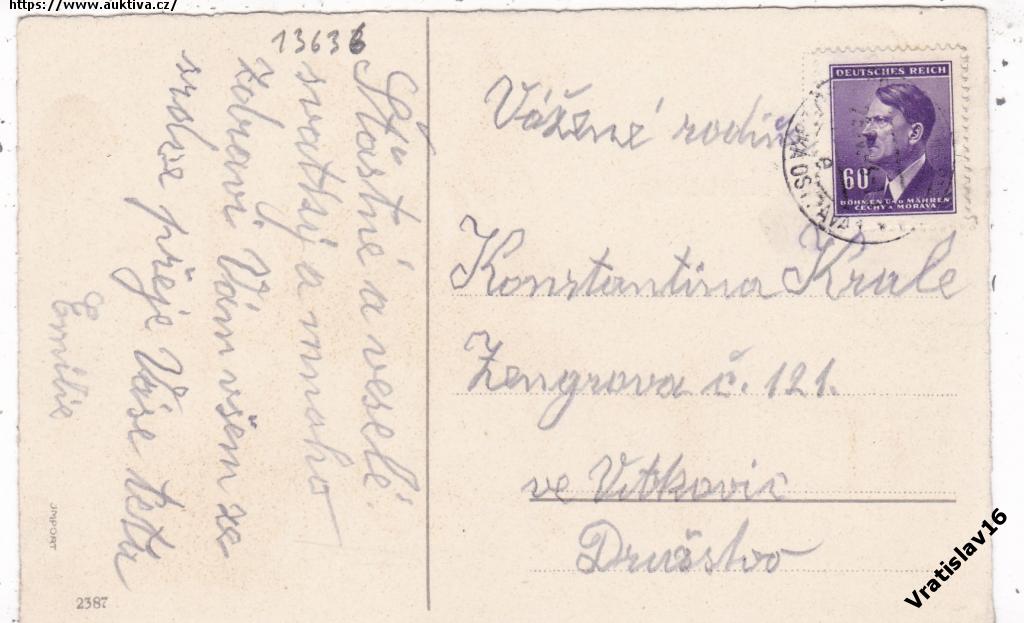 https://www.auktiva.cz/
13636
Šťastné a veselé
svátky a mnoho
zdraví Vám všem ze
srdce přeje Vaše teta
Emilie
Vážené
Konstantina Krale
Zengrova č. 121.
ve Vitkovic
Družstvo
DEUTSCHES REICH
60
BÖHMEN UND MÄHREN
ČECHY A MORAVA
JMPORT
2387
Vratislav16